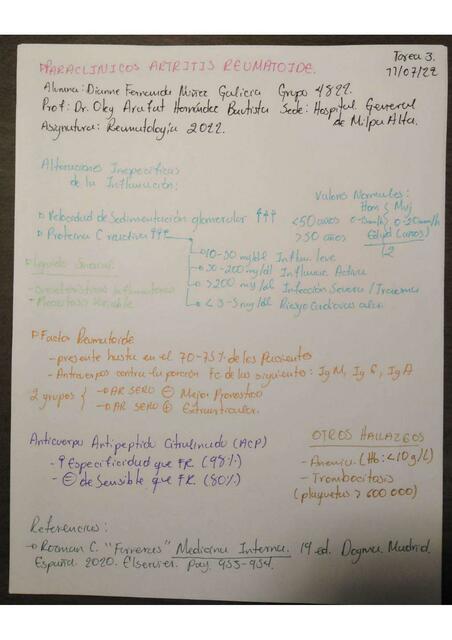 Tarea 3.
▷PARACLINICOS ARTRITIS REUMATOIDE.
11/07/22
Alumna: Dianne Fernanda Núñez Galicia Grupo 4822.
Prof: Dr. Oley Arafat Hernández Bautista Sede: Hospital General de Milpa Alta.
Asignatura: Reumatología 2022.
Alteraciones Inespecíficas
de la Inflamación:
Valores Normales:
Hom { Muj
▷ Velocidad de Sedimentación glomerular ↑↑↑
<50 años 0-15mm/h 0-20mm/h
▷ Proteína C reactiva ↑↑↑
>50 años Edad (años)
2
→ 10-30 mg/dl Inflam. leve
▷ Líquido Sinovial
→ 30-200 mg/dl Inflamac. Activa
- Características inflamatorias
→ >200 mg/dl Infección Severa / Trauma
- Viscosidad Variable
→ < 3-5 mg/dl Riesgo Cardiovascular
▷ Factor Reumatoide
- presente hasta en el 70-75% de los Pacientes
- Anticuerpos contra la porción Fc de las siguientes: IgM, IgG, IgA
2 grupos { → AR SERO ⊖ Mejor Pronostico
→ AR SERO ⊕ Extraarticular.
Anticuerpo Antipeptido Citrulinado (ACP)
- ↑ Especificidad que FR. (98%)
- ⊖ de Sensible que FR (80%)
OTROS HALLAZGOS
- Anemia. (Hb: <10 g/L)
- Trombocitosis
(plaquetas > 600 000)
Referencias:
→ Rozman C. "Farreras" Medicina Interna. 19 ed. Madrid.
España. 2020. Elsevier. Pag. 953-954.